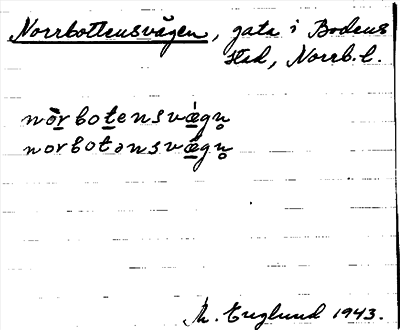 Norrbottensvägen, gata i Bodens
stad, Norrb. l.
nòrbotensvǽgn̥
norbotənsvǽgn̥
M. Englund 1943.